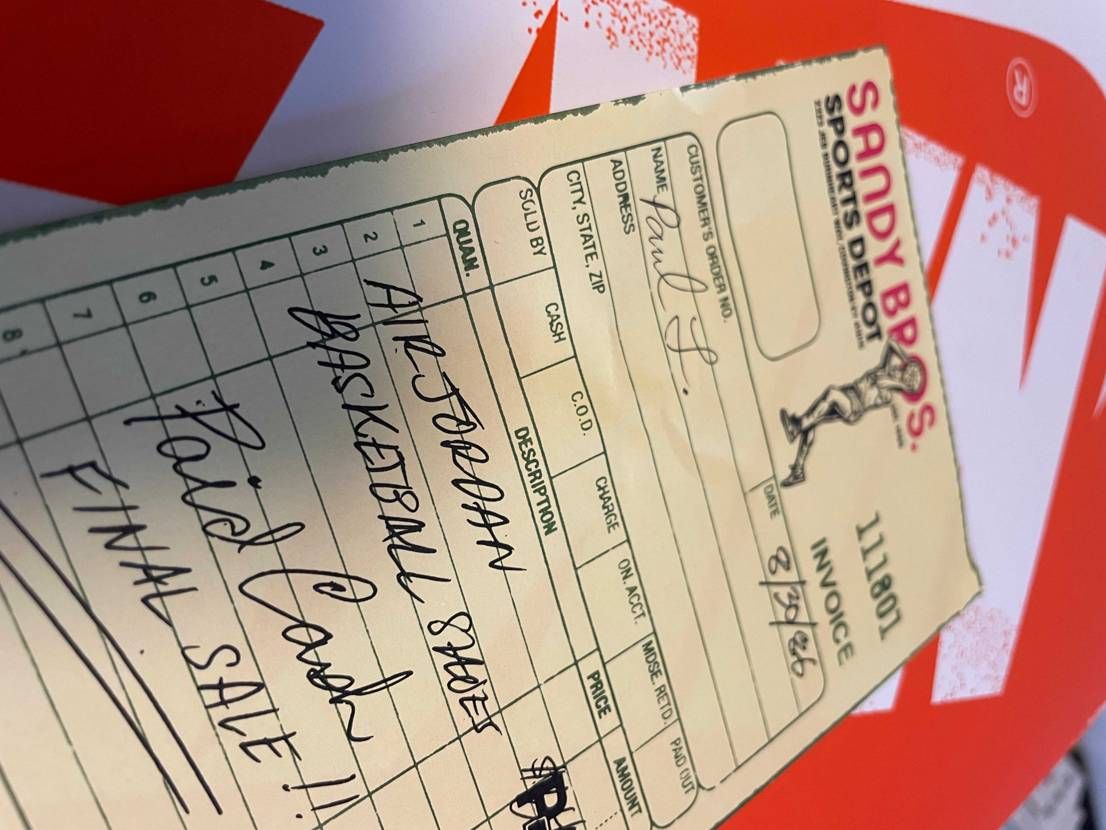 SANDY BROS.
SPORTS DEPOT
111801
INVOICE
CUSTOMER'S ORDER NO.
DATE 8/30/86
NAME Paul L.
ADDRESS
CITY, STATE, ZIP
SOLD BY CASH C.O.D. CHARGE ON. ACCT. MDSE. RETD. PAID OUT
QUAN. DESCRIPTION PRICE AMOUNT
1 AIR JORDAN
2 BASKETBALL SHOES
3
4 Paid Cash
5
6 FINAL SALE!!
7
8
®